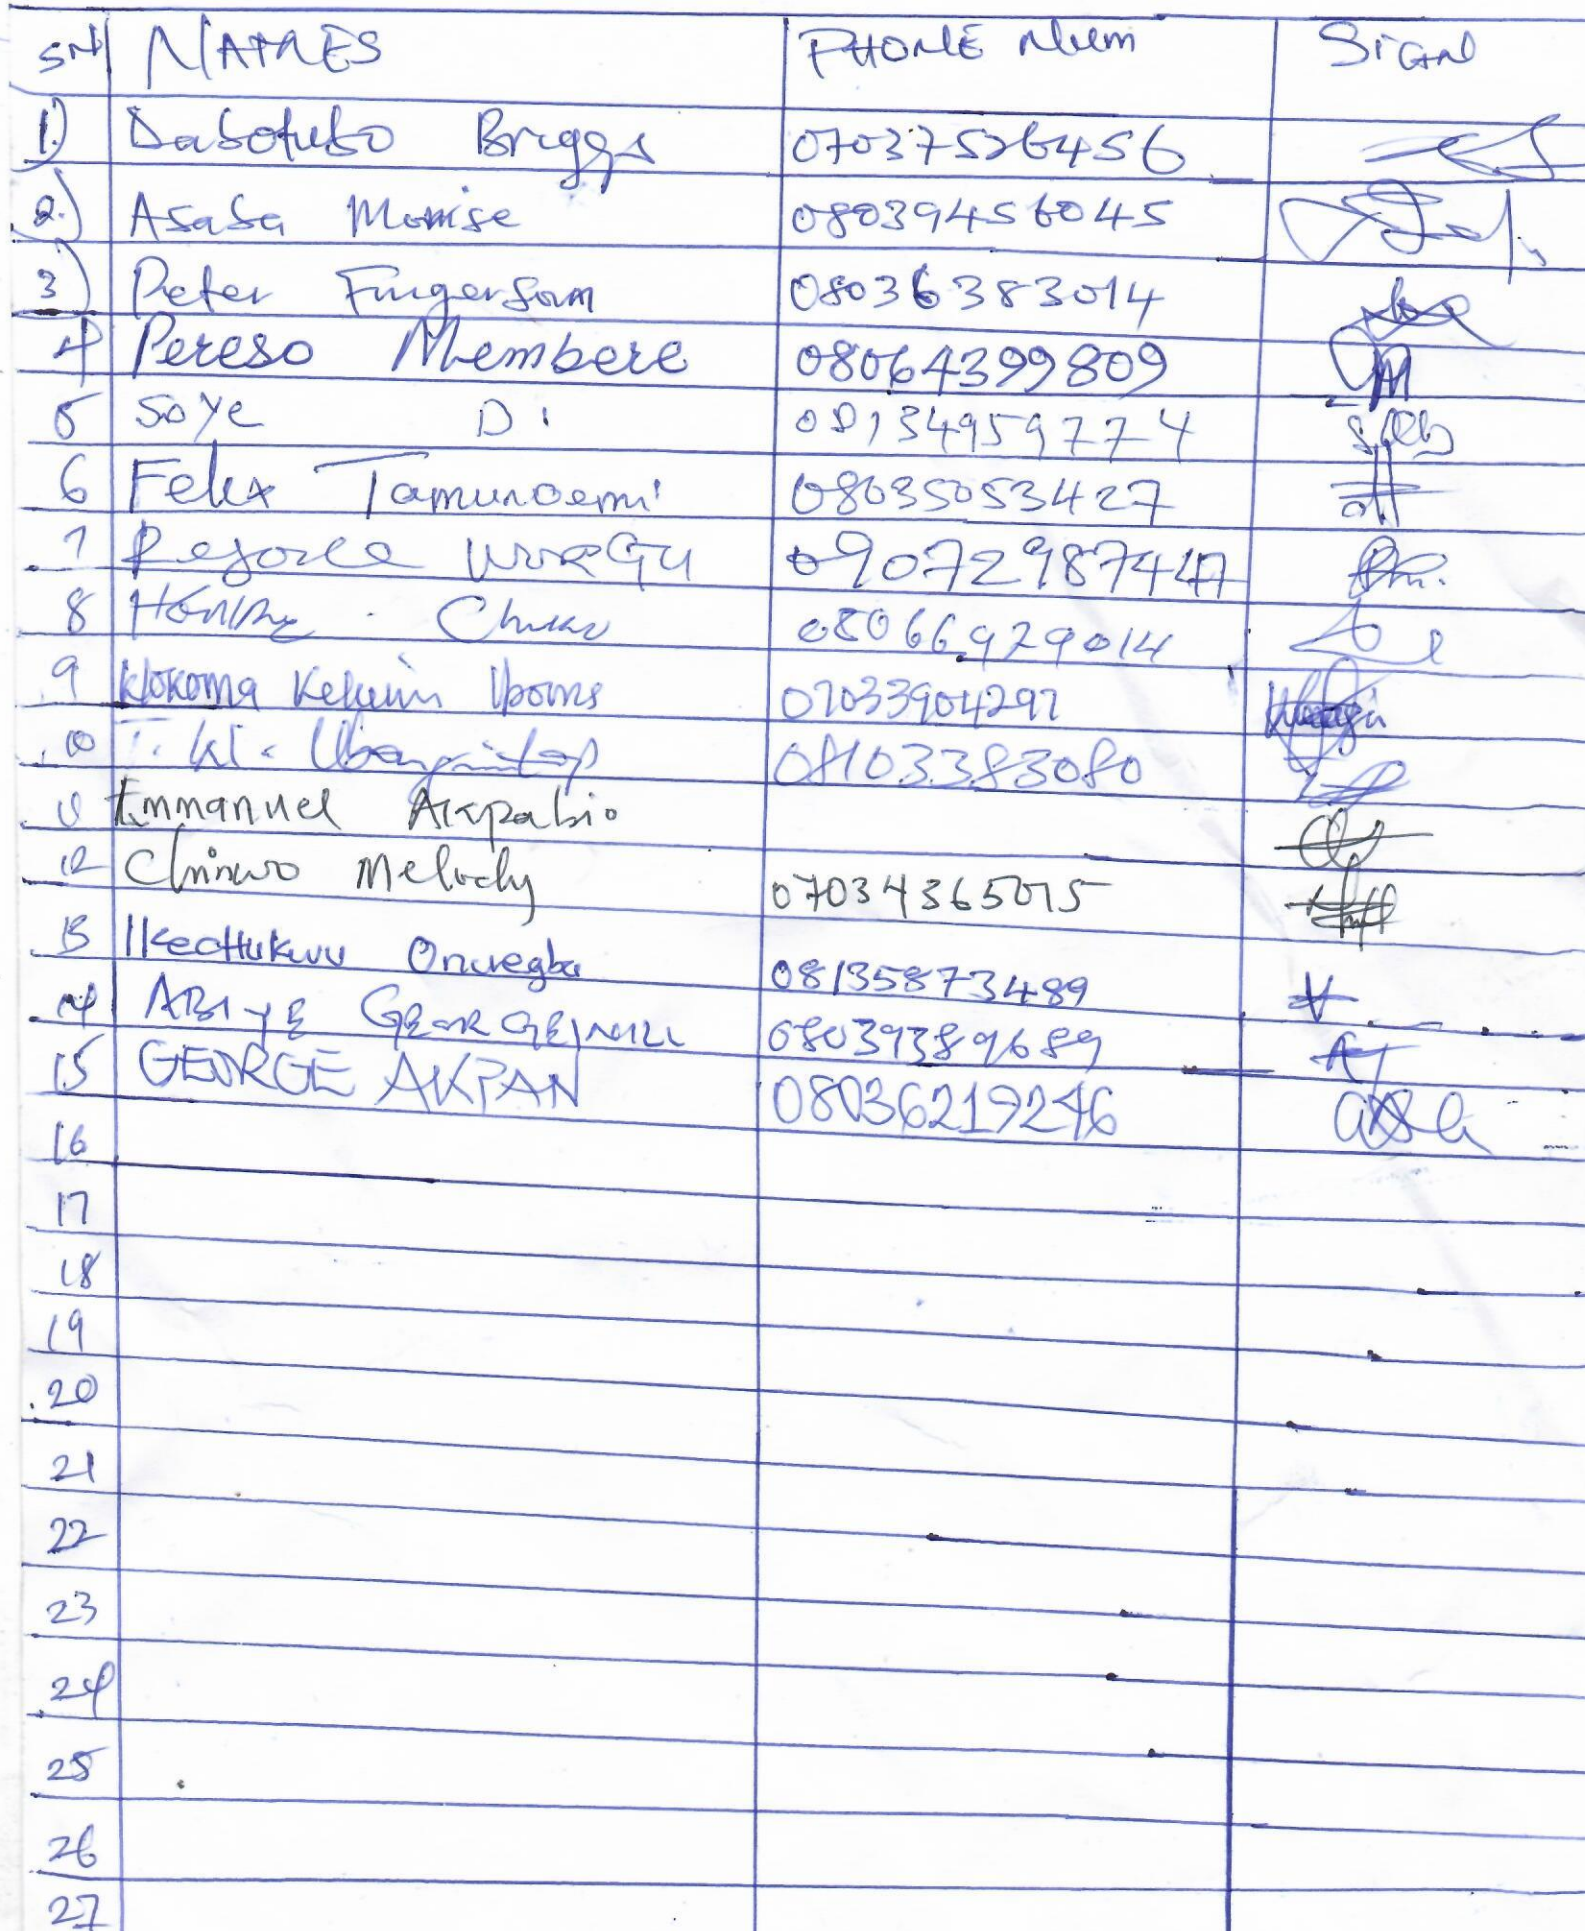 SN NAMES PHONE Num SIGN
1) Dasotubo Briggs 07037526456
2.) Asasa Monise 08039456045
3) Peter Fingersam 08036383014
4 Pereso Membere 08064399809
5 Soye D. 08134959774
6 Felix Tamunoemi 08035053427
7 Rejoice WORGU
8 Chuku 08066929014
9 Wokoma Kelvin Iboms 07033904297
10 08103383080
11 Emmanuel Akpabio
12 Chinwo Melody 07034365015
13 Ikechukwu Onuegbu 08135873489
14 ABIYE GEORGEWILL 08039389689
15 GEORGE AKPAN 08036219246
16
17
18
19
20
21
22
23
24
25
26
27